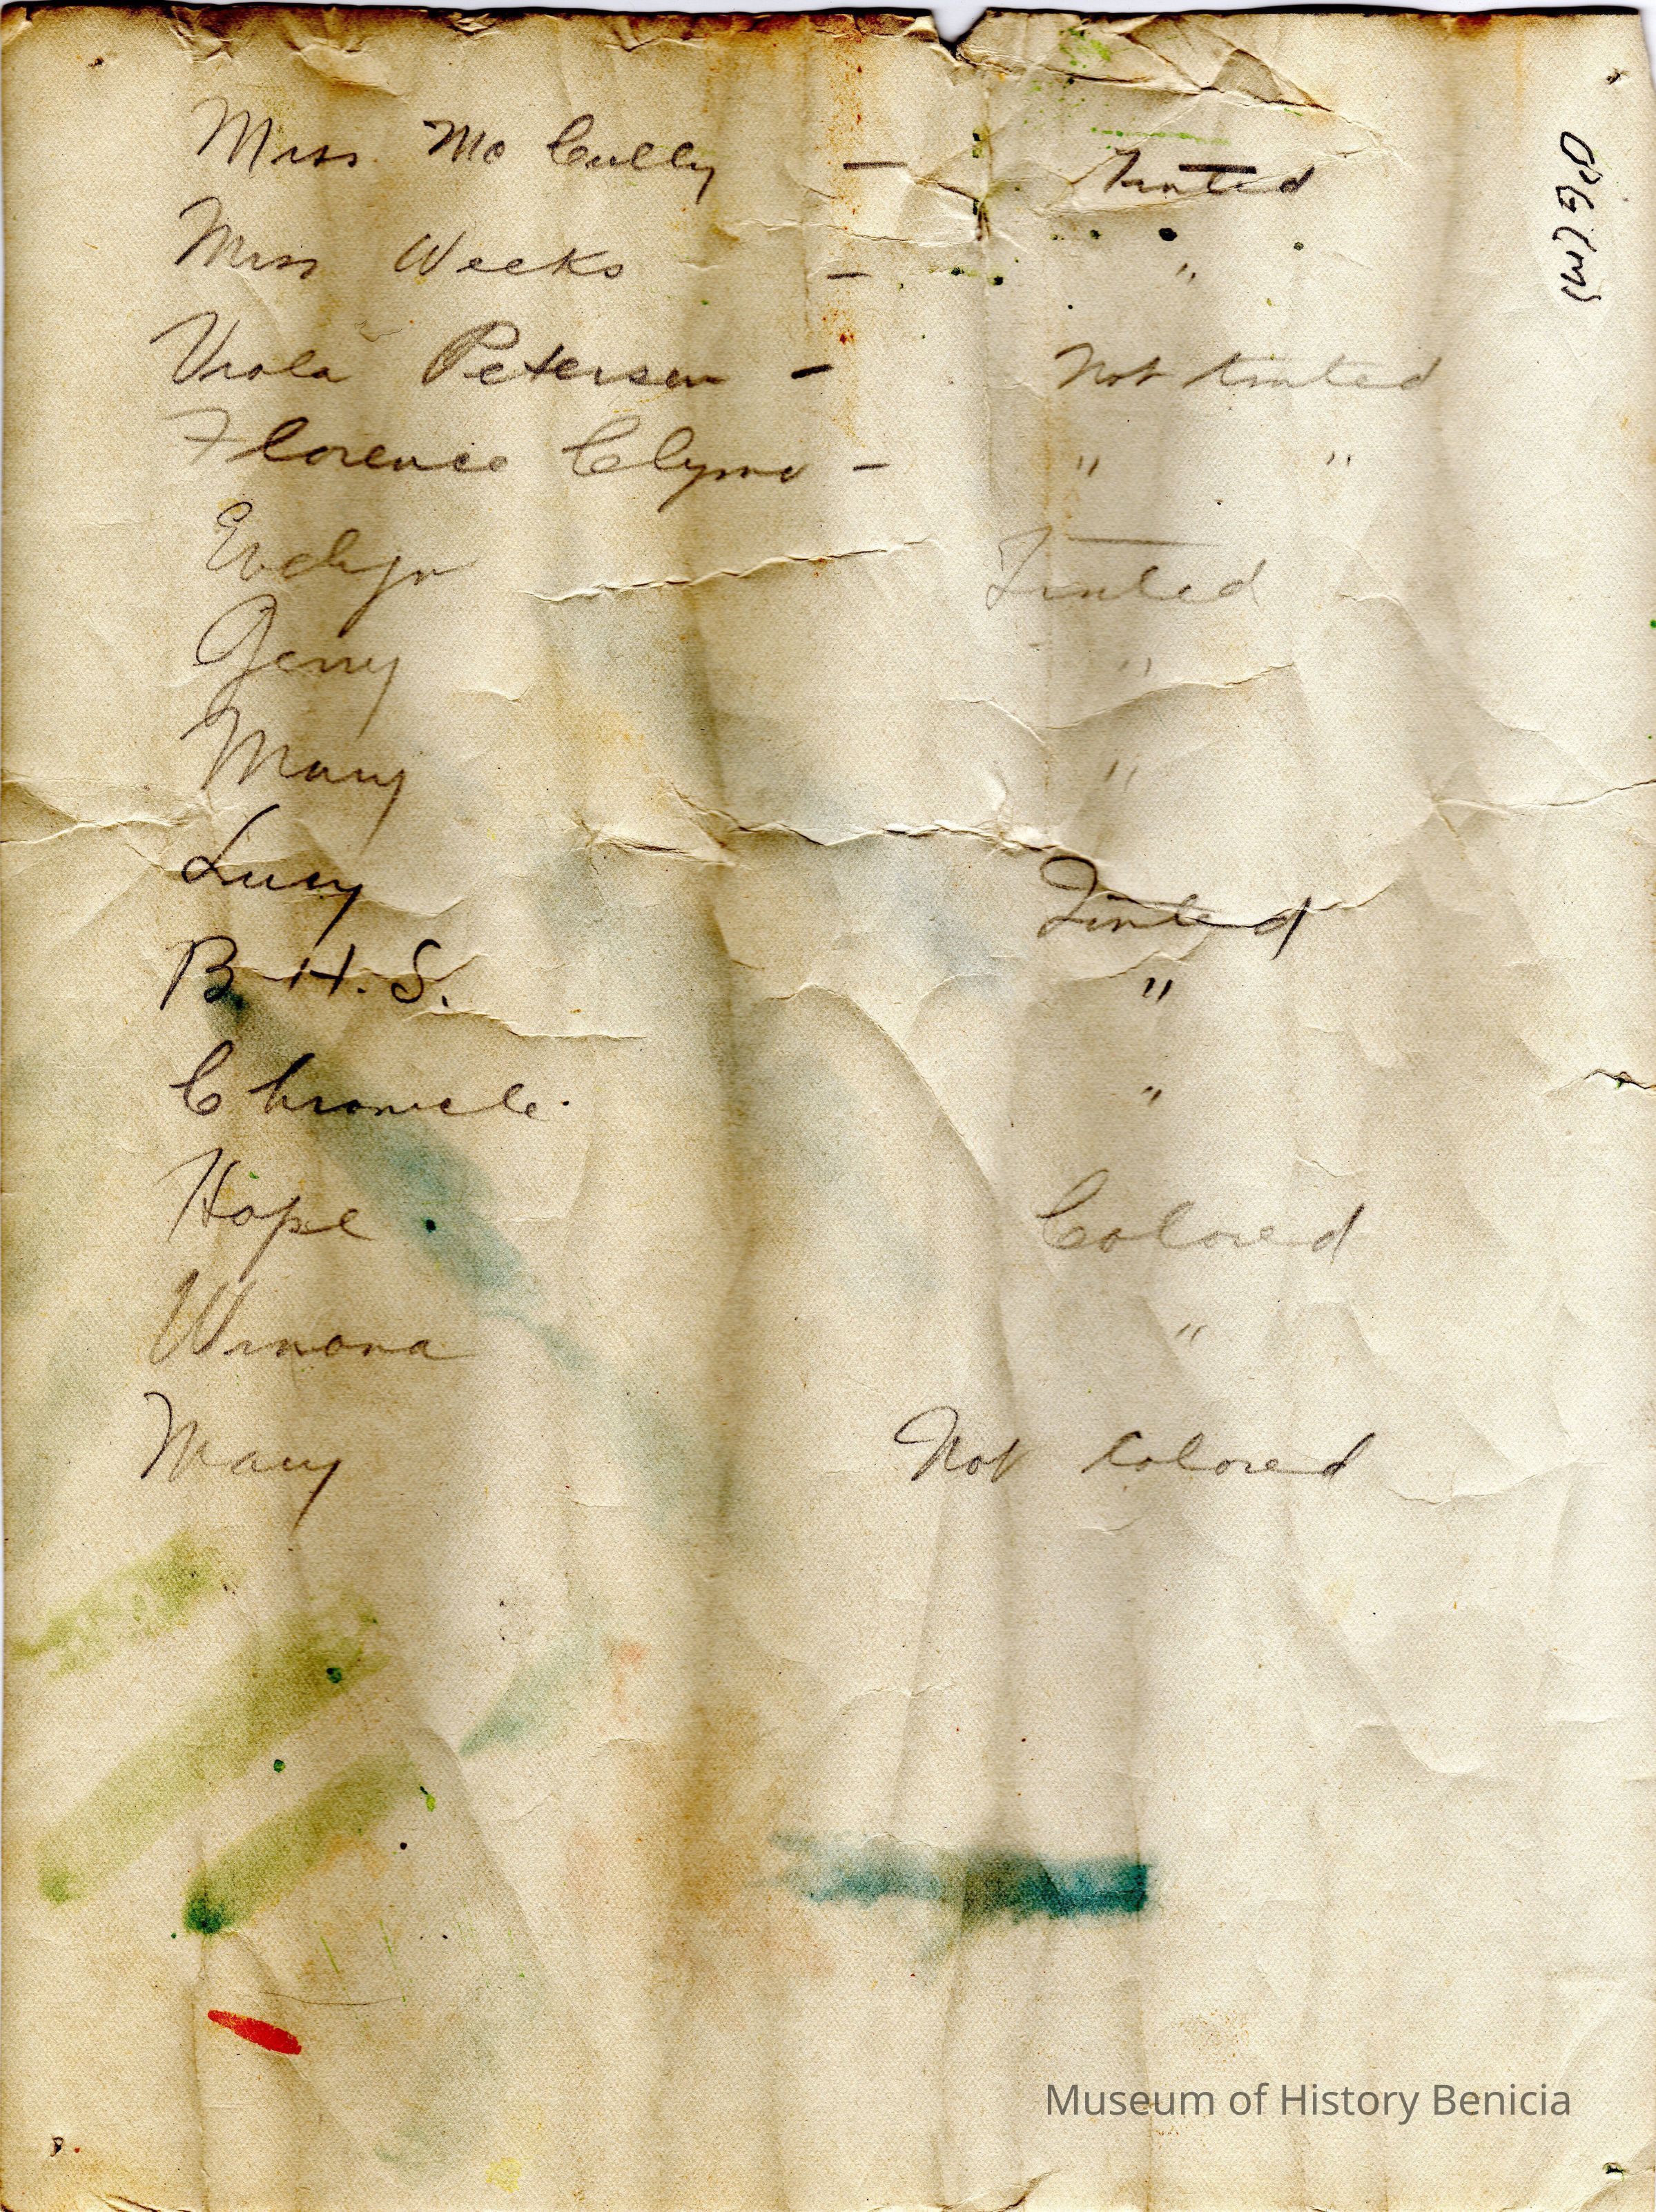 Miss McCully — Tinted
Miss Weeks — "
Viola Petersen — Not tinted
Florence Clyma — " "
Evelyn Tinted
Jerry "
Mary "
Lucy Tinted
B.H.S. "
Chronicle. "
Hope Colored
Winona "
Mary Not Colored
Museum of History Benicia